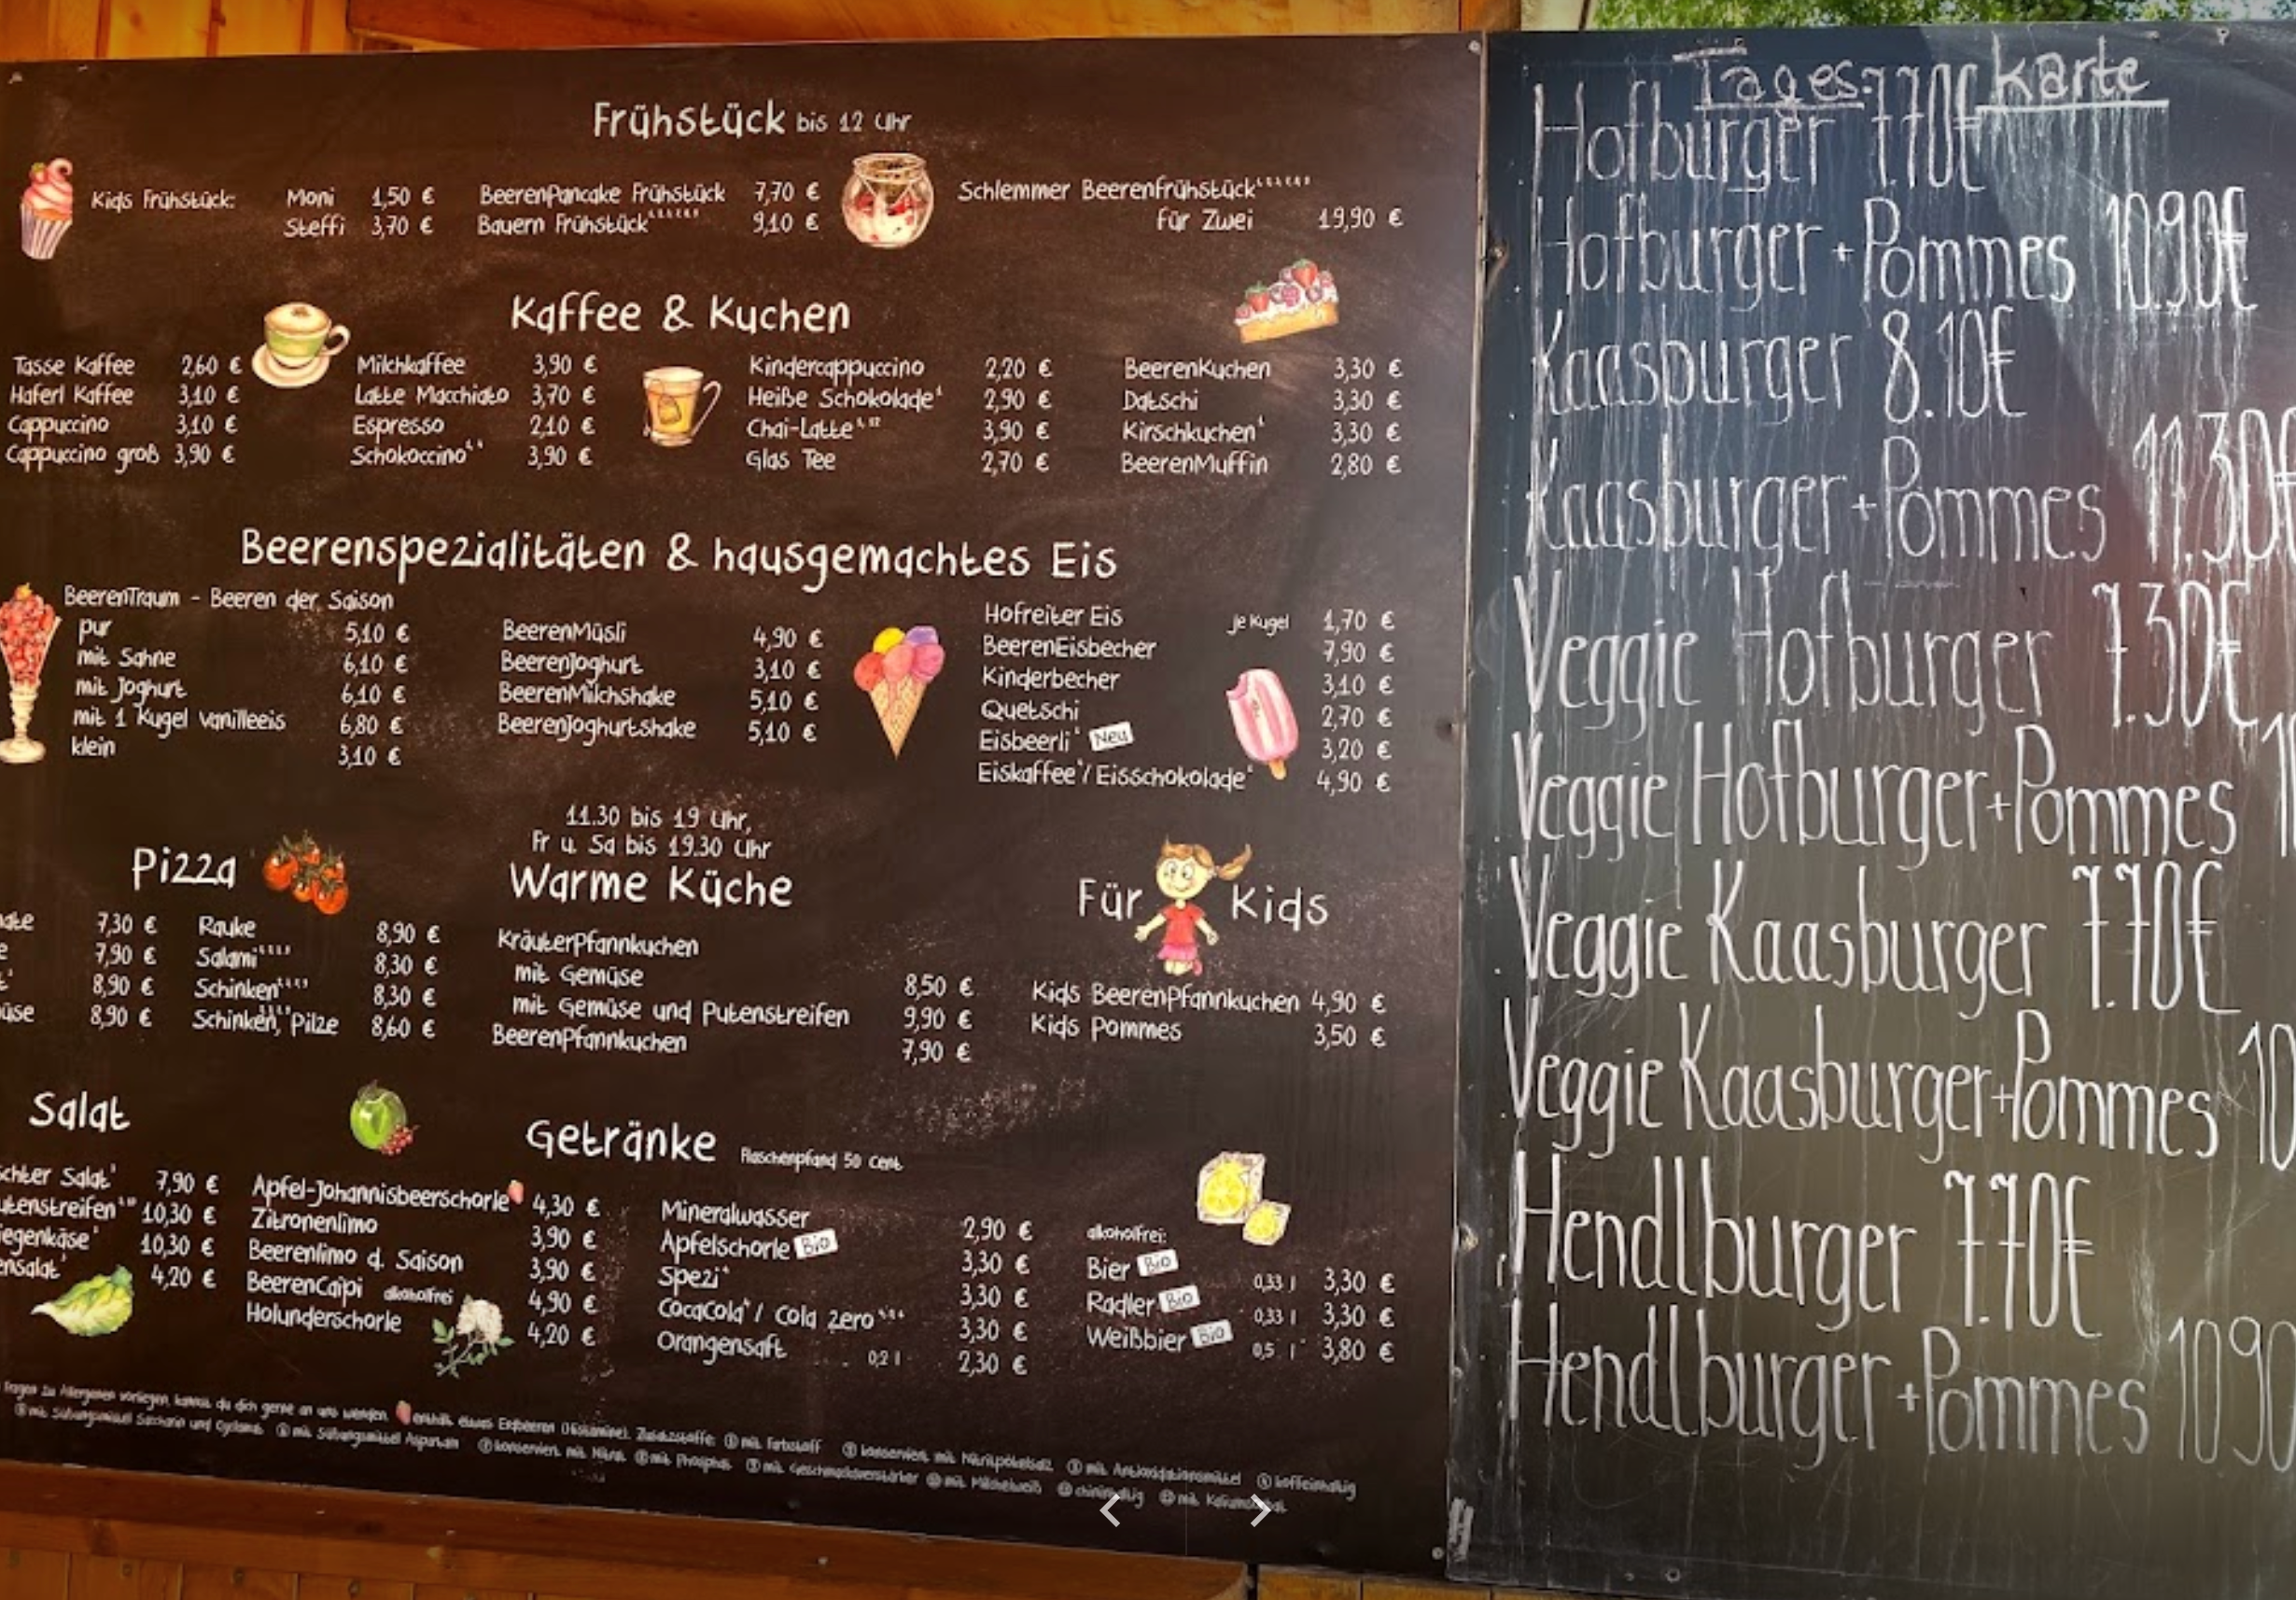 Frühstück bis 12 Uhr
Kids Frühstück: Moni 1,50 €
Steffi 3,70 €
BeerenPancake Frühstück 7,70 €
Bauern Frühstück 9,10 €
Schlemmer Beerenfrühstück
für Zwei 19,90 €
Kaffee & Kuchen
Tasse Kaffee 2,60 €
Haferl Kaffee 3,10 €
Cappuccino 3,10 €
Cappuccino groß 3,90 €
Milchkaffee 3,90 €
Latte Macchiato 3,70 €
Espresso 2,10 €
Schokoccino 3,90 €
Kindercappuccino 2,20 €
Heiße Schokolade 2,90 €
Chai-Latte 3,90 €
Glas Tee 2,70 €
BeerenKuchen 3,30 €
Datschi 3,30 €
Kirschkuchen 3,30 €
BeerenMuffin 2,80 €
Beerenspezialitäten & hausgemachtes Eis
BeerenTraum - Beeren der Saison
pur 5,10 €
mit Sahne 6,10 €
mit Joghurt 6,10 €
mit 1 Kugel Vanilleeis 6,80 €
klein 3,10 €
BeerenMüsli 4,90 €
BeerenJoghurt 3,10 €
BeerenMilchshake 5,10 €
BeerenJoghurtshake 5,10 €
Hofreiter Eis je Kugel 1,70 €
BeerenEisbecher 7,90 €
Kinderbecher 3,10 €
Quetschi 2,70 €
Eisbeerli Neu 3,20 €
Eiskaffee / Eisschokolade 4,90 €
Pizza
7,30 €
7,90 €
8,90 €
8,90 €
Rauke 8,90 €
Salami 8,30 €
Schinken 8,30 €
Schinken, Pilze 8,60 €
11.30 bis 19 Uhr,
Fr u. Sa bis 19.30 Uhr
Warme Küche
KräuterPfannkuchen
mit Gemüse 8,50 €
mit Gemüse und Putenstreifen 9,90 €
BeerenPfannkuchen 7,90 €
Für Kids
Kids BeerenPfannkuchen 4,90 €
Kids Pommes 3,50 €
Salat
Salat 7,90 €
10,30 €
10,30 €
4,20 €
Getränke Flaschenpfand 50 Cent
Apfel-Johannisbeerschorle 4,30 €
Zitronenlimo 3,90 €
Beerenlimo d. Saison 3,90 €
BeerenCaipi alkoholfrei 4,90 €
Holunderschorle 4,20 €
Mineralwasser 2,90 €
Apfelschorle Bio 3,30 €
Spezi 3,30 €
CocaCola / Cola Zero 3,30 €
Orangensaft 0,2 l 2,30 €
alkoholfrei:
Bier Bio 0,33 l 3,30 €
Radler Bio 0,33 l 3,30 €
Weißbier Bio 0,5 l 3,80 €
Fragen zu Allergenen vorliegen, kannst du dich gerne an uns wenden. enthält etwas Erdbeeren (Histamine). Zusatzstoffe: ① mit Farbstoff konserviert mit Nitritpökelsalz ③ mit Antioxidationsmittel ④ koffeinhaltig
mit Süßungsmittel Saccharin und Cyclamat mit Süßungsmittel Aspartam konserviert mit Nitrat mit Phosphat mit Geschmacksverstärker mit Milcheiweiß chininhaltig
Tages-Karte
Hofburger 7.70€
Hofburger + Pommes 10.90€
Kaasburger 8.10€
Kaasburger + Pommes 11.30€
Veggie Hofburger 7.30€
Veggie Hofburger + Pommes
Veggie Kaasburger 7.70€
Veggie Kaasburger + Pommes
Hendlburger 7.70€
Hendlburger + Pommes 10.90